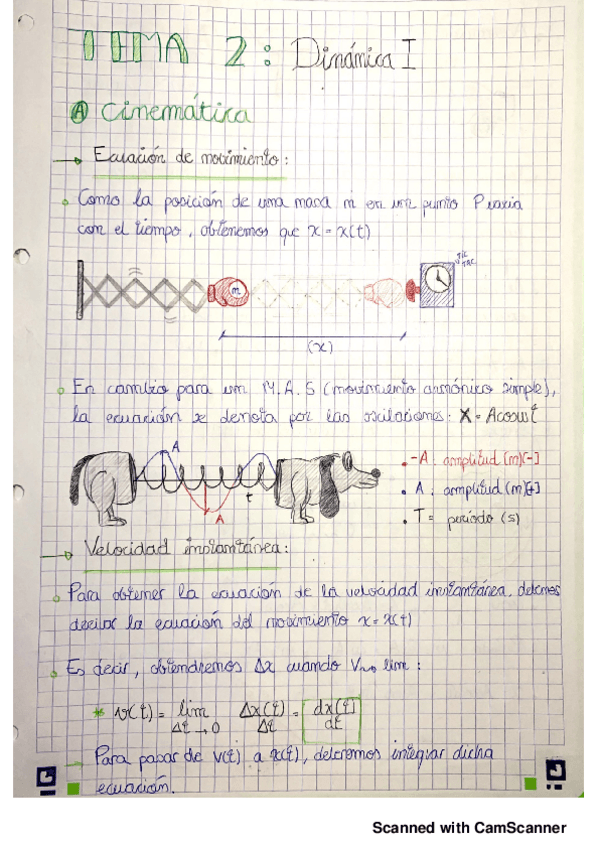 TEMA 2: Dinámica I
A Cinemática
→ Ecuación de movimiento:
Como la posición de una masa m en un punto P varia
con el tiempo, obtenemos que x = x(t)
m
TIC TAC
(x)
En cambio para un M.A.S (movimiento armónico simple),
la ecuación se denota por las oscilaciones: X = Acosωt
A
t
A
-A: amplitud (m)[-]
A: amplitud (m)[+]
T = período (s)
→ Velocidad instantánea:
Para obtener la ecuación de la velocidad instantánea, debemos
derivar la ecuación del movimiento x = x(t)
Es decir, obtendremos Δx cuando lim:
* v(t) = lim Δt→0 Δx(t)/Δt = dx(t)/dt
→ Para pasar de v(t) a x(t), deberemos integrar dicha
ecuación.
Scanned with CamScanner